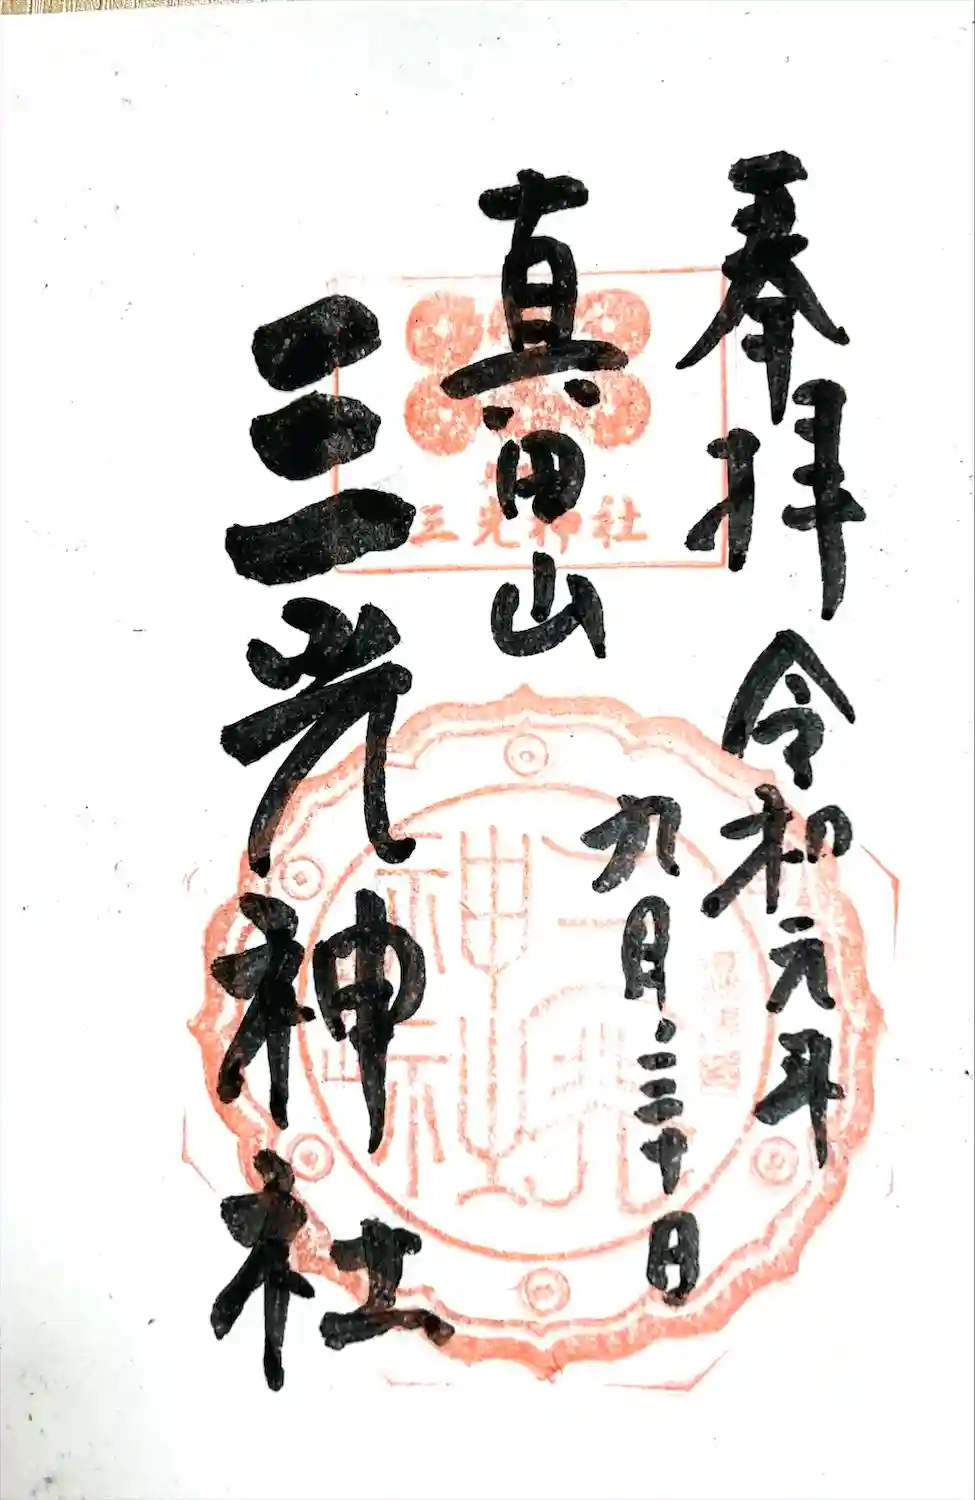 奉拝 令和元年
九月三十日
真田山
三光神社
三光神社